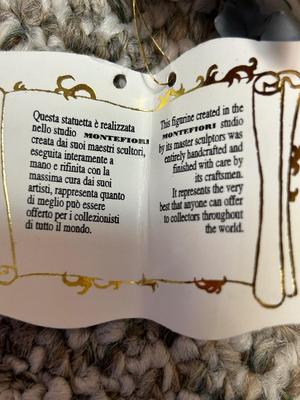 Questa statuetta è realizzata
nello studio MONTEFIORI
creata dai suoi maestri scultori,
eseguita interamente a
mano e rifinita con la
massima cura dai suoi
artisti, rappresenta quanto
di meglio può essere
offerto per i collezionisti
di tutto il mondo.
This figurine created in the
MONTEFIORI studio
by its master sculptors was
entirely handcrafted and
finished with care by
its craftsmen.
It represents the very
best that anyone can offer
to collectors throughout
the world.